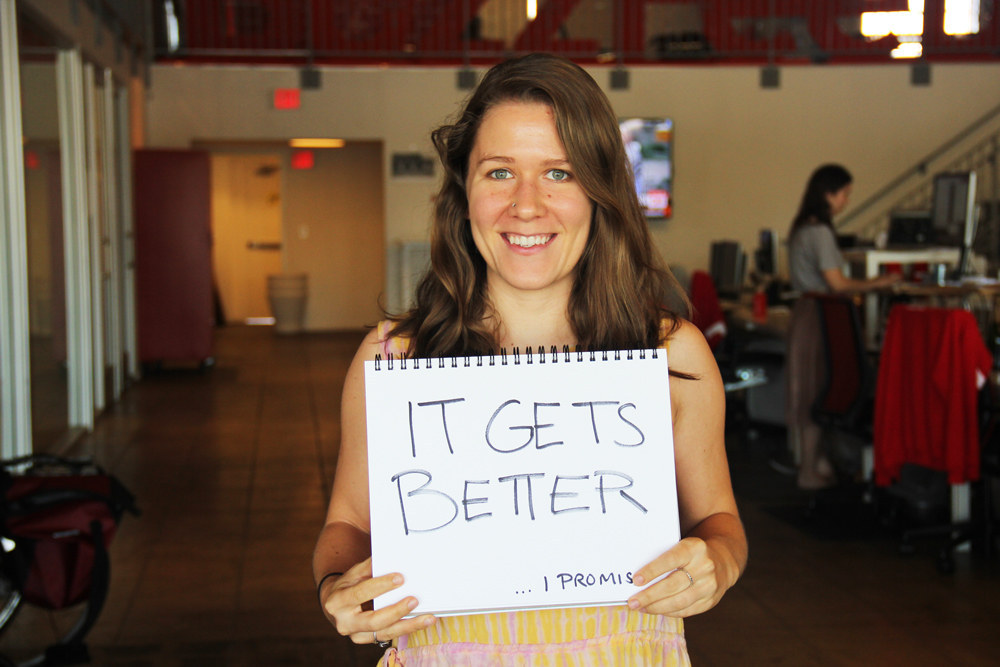 IT GETS
BETTER
... I PROMIS